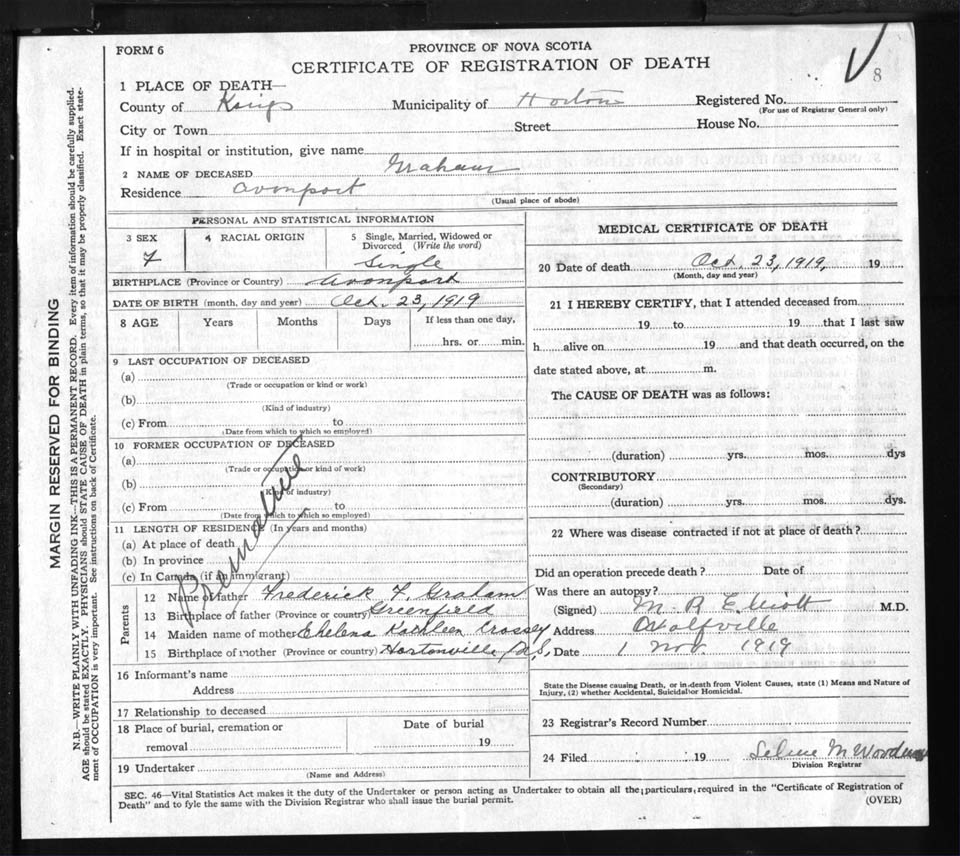 FORM 6
PROVINCE OF NOVA SCOTIA
CERTIFICATE OF REGISTRATION OF DEATH
8
1 PLACE OF DEATH—
County of Kings Municipality of Horton Registered No.
(For use of Registrar General only)
City or Town Street House No.
If in hospital or institution, give name
2 NAME OF DECEASED Graham
Residence Avonport
(Usual place of abode)
PERSONAL AND STATISTICAL INFORMATION
3 SEX 4 RACIAL ORIGIN 5 Single, Married, Widowed or
Divorced (Write the word)
F Single
BIRTHPLACE (Province or Country) Avonport
DATE OF BIRTH (month, day and year) Oct. 23, 1919
8 AGE Years Months Days If less than one day,
hrs. or min.
9 LAST OCCUPATION OF DECEASED
(a)
(Trade or occupation or kind or work)
(b)
(Kind of industry)
(c) From to
(Date from which to which so employed)
10 FORMER OCCUPATION OF DECEASED
(a)
(Trade or occupation or kind of work)
(b)
(Kind of industry)
(c) From to
(Date from which to which so employed)
11 LENGTH OF RESIDENCE (In years and months)
(a) At place of death
(b) In province
(c) In Canada (if an immigrant)
Premature
Parents
12 Name of father Frederick F. Graham
13 Birthplace of father (Province or country) Greenfield
14 Maiden name of mother Kathleen
15 Birthplace of mother (Province or country) Hortonville N.S.
16 Informant's name
Address
17 Relationship to deceased
18 Place of burial, cremation or Date of burial
removal 19
19 Undertaker
(Name and Address)
MEDICAL CERTIFICATE OF DEATH
20 Date of death Oct. 23, 1919, 19
(Month, day and year)
21 I HEREBY CERTIFY, that I attended deceased from
19 to 19 that I last saw
h alive on 19 and that death occurred, on the
date stated above, at m.
The CAUSE OF DEATH was as follows:
(duration) yrs. mos. dys
CONTRIBUTORY
(Secondary)
(duration) yrs. mos. dys.
22 Where was disease contracted if not at place of death?
Did an operation precede death? Date of
Was there an autopsy?
(Signed) M. R. Elliott M.D.
Address Wolfville
Date 1 Nov. 1919
State the Disease causing Death, or in death from Violent Causes, state (1) Means and Nature of
Injury, (2) whether Accidental, Suicidal or Homicidal.
23 Registrar's Record Number
24 Filed 19 M Woodman
Division Registrar
SEC. 46—Vital Statistics Act makes it the duty of the Undertaker or person acting as Undertaker to obtain all the particulars required in the "Certificate of Registration of
Death" and to fyle the same with the Division Registrar who shall issue the burial permit.
(OVER)
MARGIN RESERVED FOR BINDING
N.B.—WRITE PLAINLY WITH UNFADING INK—THIS IS A PERMANENT RECORD. Every item of information should be carefully supplied.
AGE should be stated EXACTLY. PHYSICIANS should STATE CAUSE OF DEATH in plain terms, so that it may be properly classified. Exact state-
ment of OCCUPATION is very important. See instructions on back of Certificate.